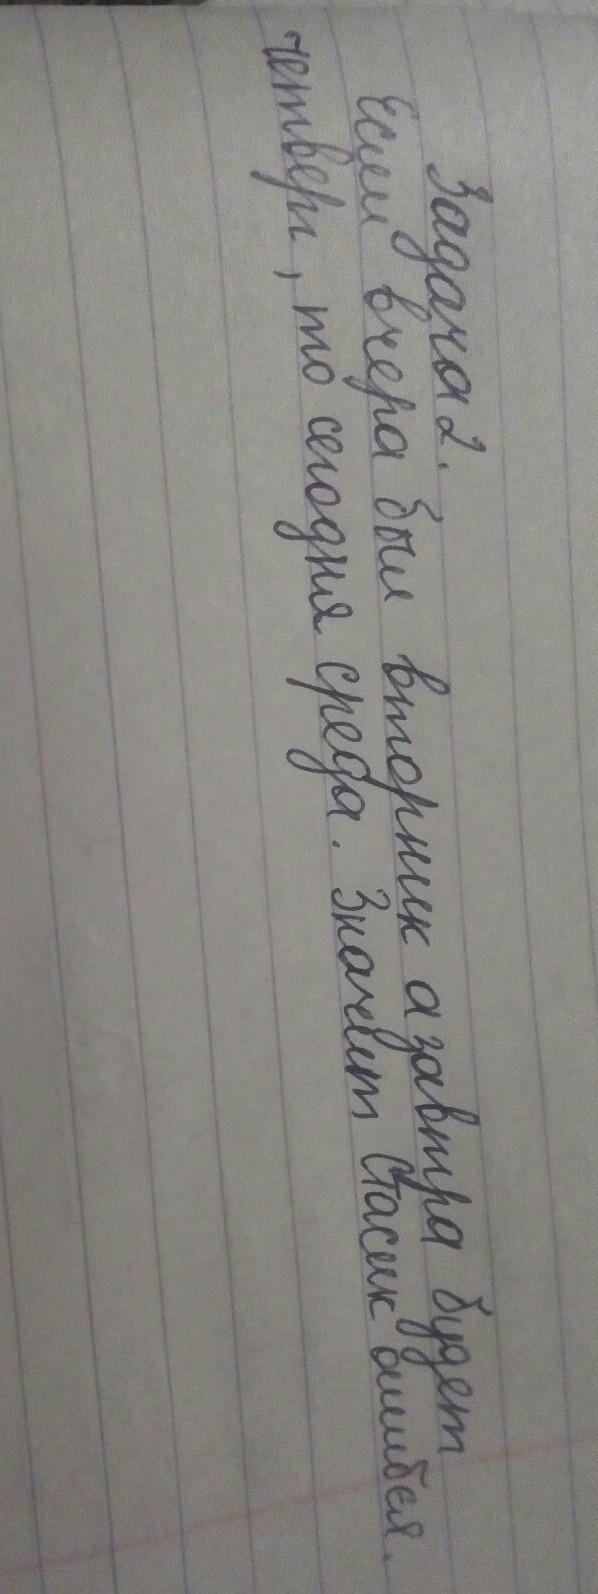 Задача 2.
Если вчера был вторник а завтра будет
четверг, то сегодня среда. Значит Стасик ошибся.